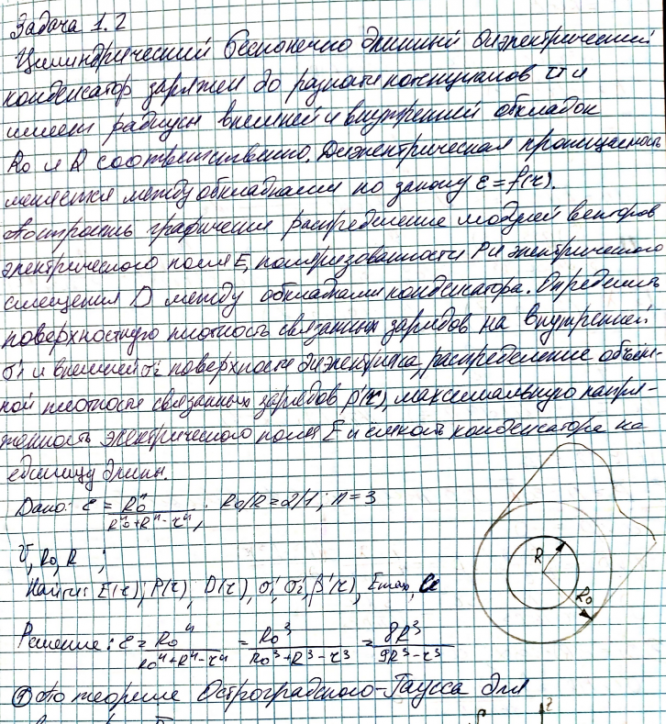 Задача 1.2
Цилиндрический бесконечно длинный диэлектрический
конденсатор заряжен до разности потенциалов U и
имеет радиусы внешней и внутренней обкладок
R₀ и R соответственно. Диэлектрическая проницаемость
меняется между обкладками по закону ε = f(r).
Построить графически распределение модулей векторов
электрического поля E, поляризованности P и электрического
смещения D между обкладками конденсатора. Определить
поверхностную плотность связанных зарядов на внутренней
σ'₁ и внешней σ'₂ поверхности диэлектрика, распределение объём-
ной плотности связанных зарядов ρ'(r), максимальную напря-
женность электрического поля E и емкость конденсатора на
единицу длины.
Дано: ε = R₀ⁿ / (R₀ⁿ + Rⁿ - rⁿ), R₀/R = 2/1; n = 3
U, R₀, R ;
Найти: E(r), P(r), D(r), σ'₁, σ'₂, ρ'(r), Emax, C
R
R₀
Решение: ε = R₀ⁿ / (R₀ⁿ + Rⁿ - rⁿ) = R₀³ / (R₀³ + R³ - r³) = 8R³ / (9R³ - r³)
① По теореме Остроградского-Гаусса для